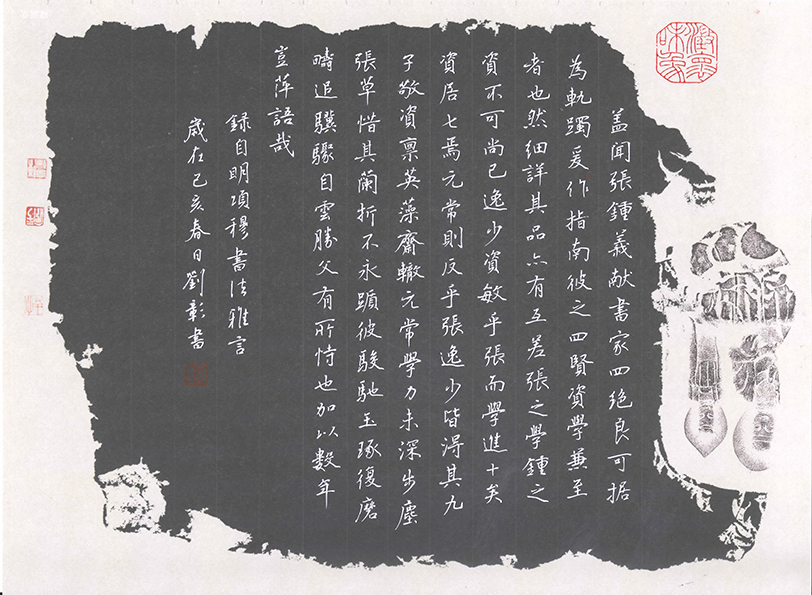 澄懷味象
盖闻張鍾羲献書家四绝良可据
為軌躅爰作指南彼之四賢資學兼至
者也然细詳其品亦有互差張之學鍾之
資不可尚已逸少資敏乎張而學進十矣
資居七焉元常則反乎張逸少皆得其九
子敬資禀英藻齋轍元常學力未深步塵
張草惜其蘭折不永蹞彼駿馳玉琢復磨
疇追驥驟自雲勝父有所恃也加以数年
豈萍語哉
録自明項穆書法雅言
歲在己亥春日劉彰書